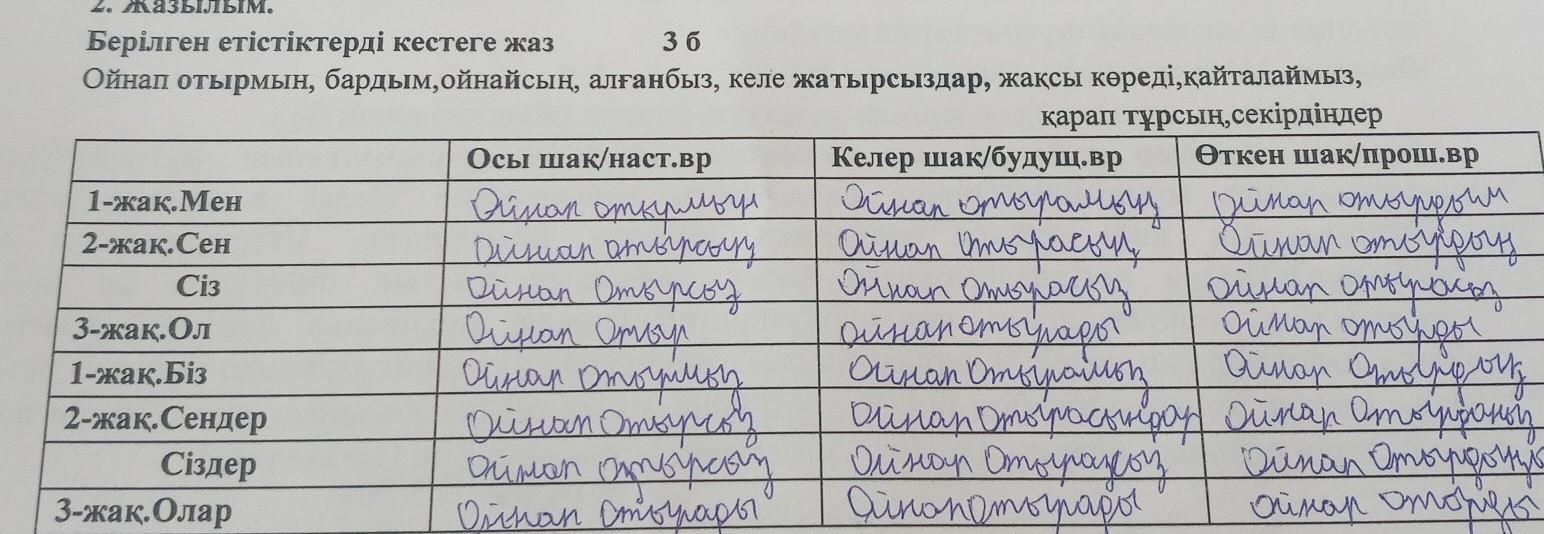 2. Жазылым.
Берілген етістіктерді кестеге жаз 3 б
Ойнап отырмын, бардым,ойнайсың, алғанбыз, келе жатырсыздар, жақсы көреді,қайталаймыз,
қарап тұрсың,секірдіңдер
Осы шақ/наст.вр Келер шақ/будущ.вр Өткен шақ/прош.вр
1-жақ.Мен Ойнап отырмын Ойнап отырамың Ойнап отырдым
2-жақ.Сен Ойнап отырсың Ойнап отырасың Ойнап отырдың
Сіз Ойнап Отырсыз Ойнап Отырасыз Ойнап отырасыз
3-жақ.Ол Ойнап Отыр Ойнап отырады Ойнап отырды
1-жақ.Біз Ойнап отырмыз Ойнап Отырамыз Ойнап Отырдық
2-жақ.Сендер Ойнап Отырсыз Ойнап Отырасындар Ойнап Отырданыз
Сіздер Ойнап Ойнап Отырасыз Ойнап
3-жақ.Олар Ойнап Отырады Ойнап Отырады Ойнап отырды